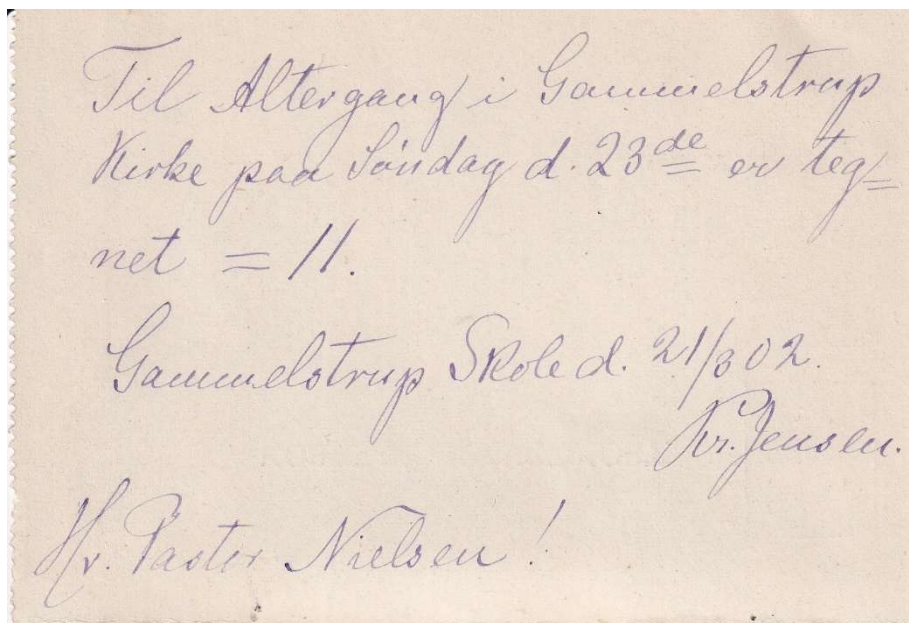 Til Altergang i Gammelstrup
Kirke paa Søndag d. 23de er teg=
net = 11.
Gammelstrup Skole d. 21/3 02.
Kr. Jensen.
Hr. Pastor Nielsen!